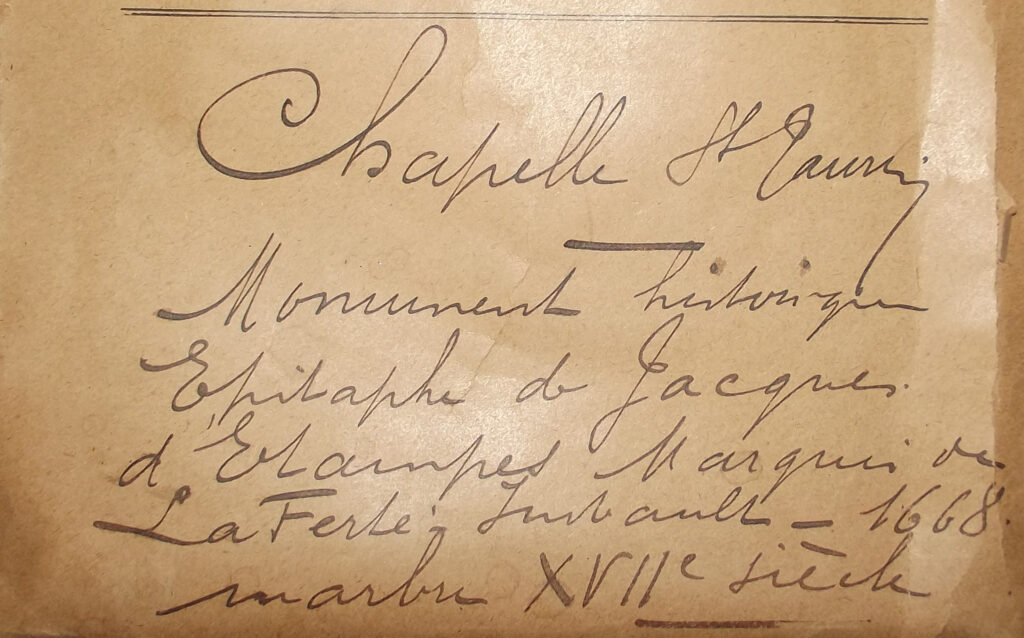 Chapelle St Taurin
Monument historique
Epitaphe de Jacques
d'Etampes Marquis de
La Ferté-Imbault - 1668.
marbre XVIIe siècle